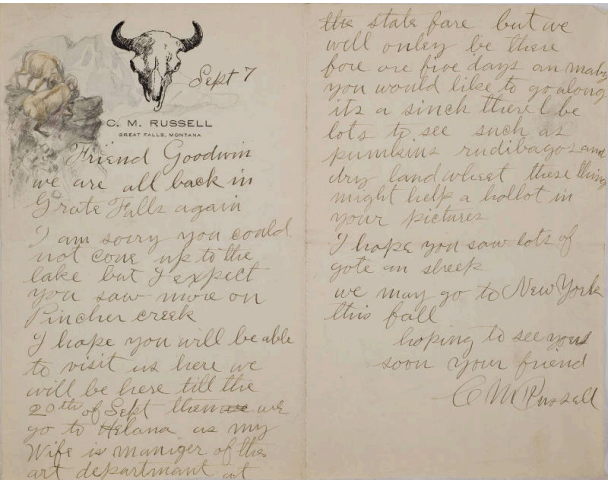 Sept 7
C. M. RUSSELL
GREAT FALLS, MONTANA
Friend Goodwin
we are all back in
Grate Falls again
I am sorry you could
not come up to the
lake but I expect
you saw more on
Pincher creek
I hope you will be able
to visit us here we
will be here till the
20th of Sept then we
go to Helana as my
Wife is maniger of the
art departmant at
the state fare but we
will onley be there
fore ore five days an maby
you would like to go along
its a sinch therel be
lots to see such as
pumkins rudibagos and
dry land wheet these things
might help a hollot in
your pictures
I hope you saw lots of
gote an sheep
we may go to New York
this fall
hoping to see you
soon your friend
C M Russell